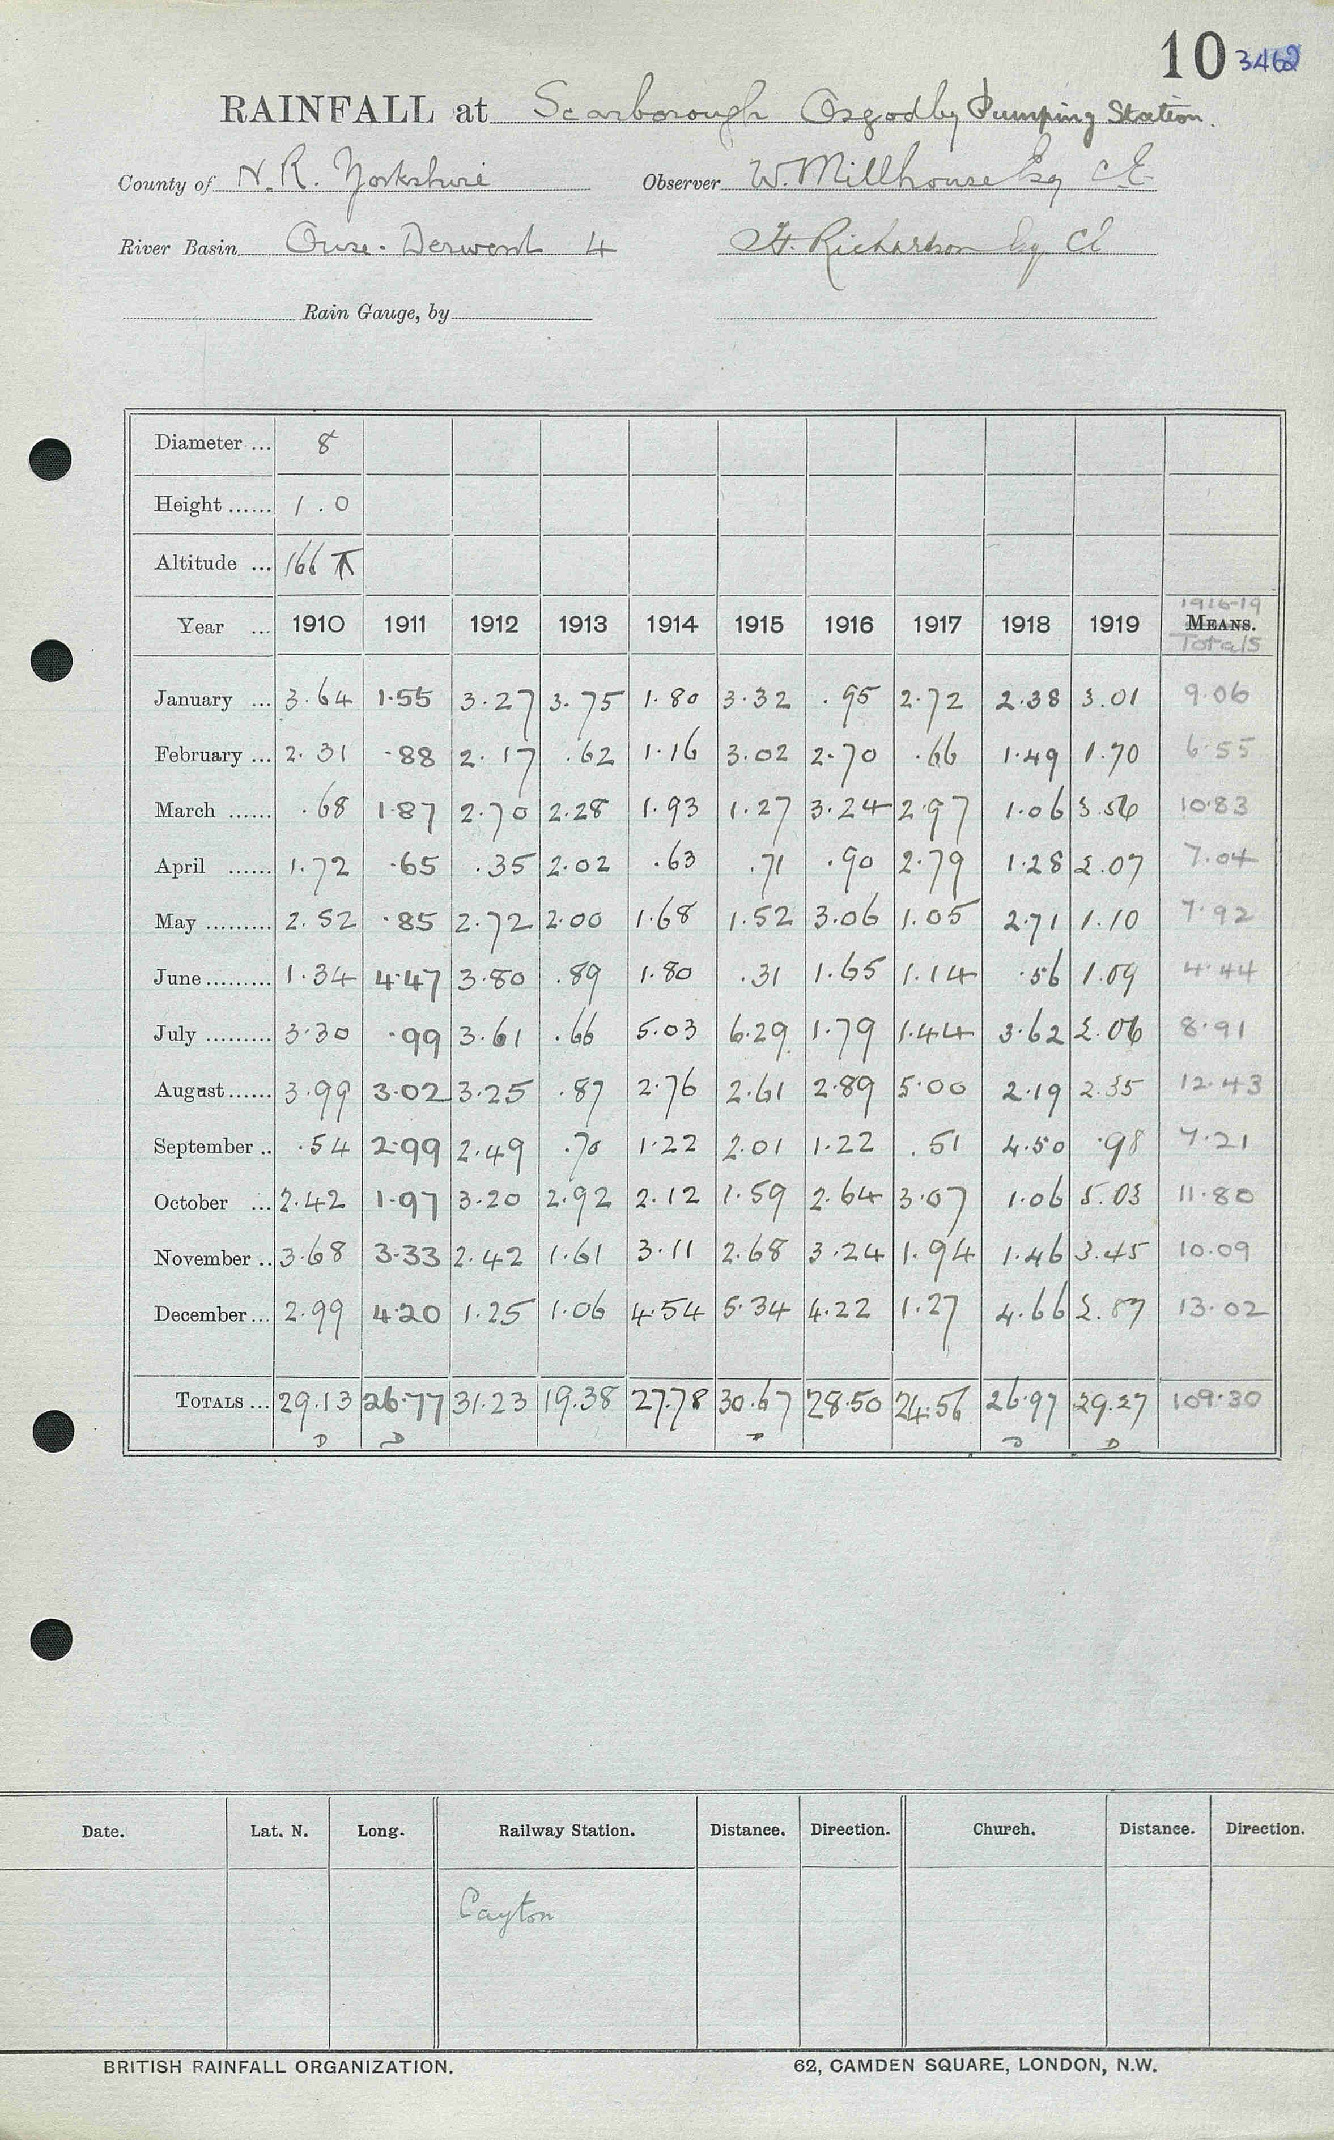 10 3462
RAINFALL at Scarborough Osgodby Pumping Station.
County of N.R. Yorkshire Observer W. Millhouse Esq C.E.
River Basin Ouse. Derwent 4 H. Richardson Esq CE
Rain Gauge, by
Diameter ... 8
Height ...... 1.0
Altitude ... 166
1916-19
Year ... 1910 1911 1912 1913 1914 1915 1916 1917 1918 1919 MEANS.
Totals
January ... 3.64 1.55 3.27 3.75 1.80 3.32 .95 2.72 2.38 3.01 9.06
February ... 2.31 .88 2.17 .62 1.16 3.02 2.70 .66 1.49 1.70 6.55
March ...... .68 1.87 2.70 2.28 1.93 1.27 3.24 2.97 1.06 3.56 10.83
April ...... 1.72 .65 .35 2.02 .63 .71 .90 2.79 1.28 2.07 7.04
May ......... 2.52 .85 2.72 2.00 1.68 1.52 3.06 1.05 2.71 1.10 7.92
June ......... 1.34 4.47 3.80 .89 1.80 .31 1.65 1.14 .56 1.09 4.44
July ......... 3.30 .99 3.61 .66 5.03 6.29 1.79 1.44 3.62 2.06 8.91
August ...... 3.99 3.02 3.25 .87 2.76 2.61 2.89 5.00 2.19 2.35 12.43
September .. .54 2.99 2.49 .70 1.22 2.01 1.22 .51 4.50 .98 7.21
October ... 2.42 1.97 3.20 2.92 2.12 1.59 2.64 3.07 1.06 5.03 11.80
November .. 3.68 3.33 2.42 1.61 3.11 2.68 3.24 1.94 1.46 3.45 10.09
December ... 2.99 4.20 1.25 1.06 4.54 5.34 4.22 1.27 4.66 2.87 13.02
TOTALS ... 29.13 26.77 31.23 19.38 27.78 30.67 28.50 24.56 26.97 29.27 109.30
D D D D D
Date. Lat. N. Long. Railway Station. Distance. Direction. Church. Distance. Direction.
Cayton
BRITISH RAINFALL ORGANIZATION. 62, CAMDEN SQUARE, LONDON, N.W.